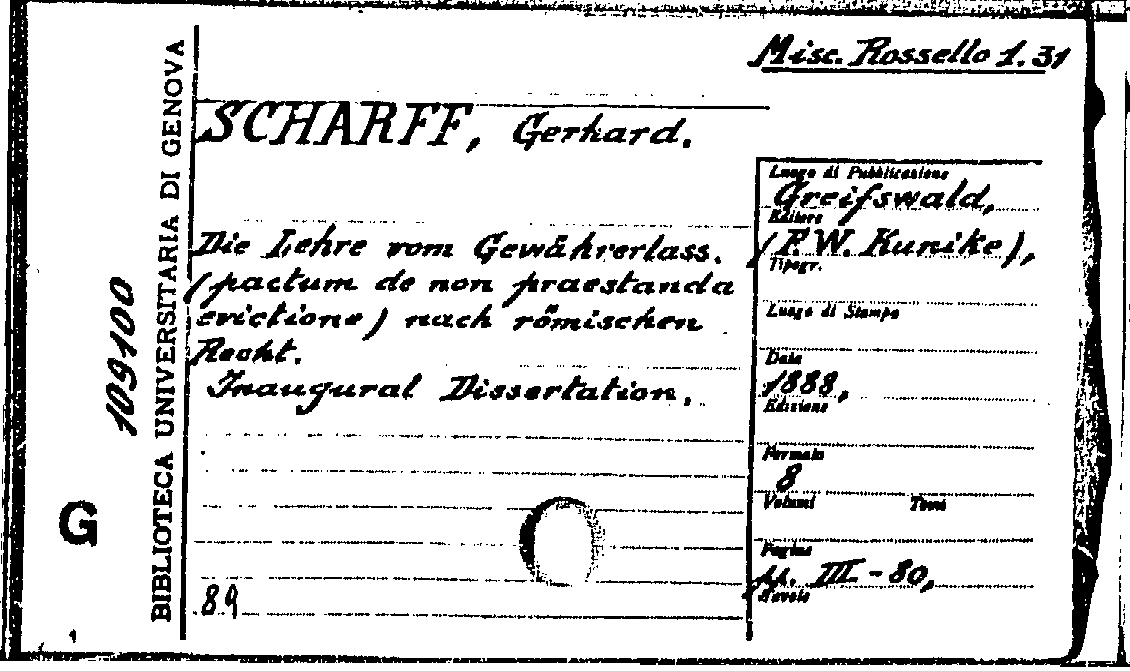 Misc. Rossello 1.31
SCHARFF, Gerhard.
Die Lehre vom Gewährerlass.
(pactum de non praestanda
evictione) nach römischen
Recht.
Inaugural Dissertation.
89
Luogo di Pubblicazione
Greifswald,
Editore
(F.W. Kunike),
Tipogr.
Luogo di Stampa
Data
1888,
Edizione
Formato
8
Volumi Tomi
Pagine
pp. III-80,
Tavole
BIBLIOTECA UNIVERSITARIA DI GENOVA
109100
G
1